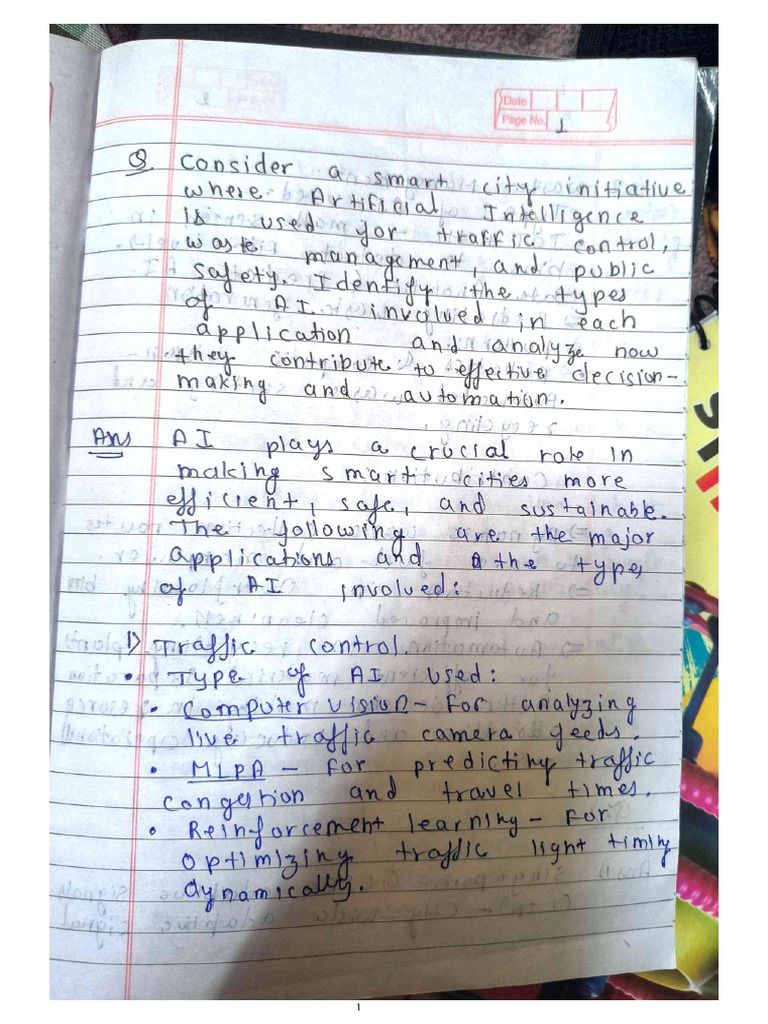 Date
Page No. 1
Q Consider a smart city initiative
where Artificial Intelligence
is used for traffic control,
waste management, and public
safety. Identify the types
of AI. involved in each
application and analyze how
they contribute to effective decision-
making and automation.
Ans AI plays a crucial role in
making smart cities more
efficient, safe, and sustainable.
The following are the major
applications and the types
of AI involved:
1) Traffic control.
• Type of AI used:
• Computer vision - For analyzing
live traffic camera feeds.
• MLPA - For predicting traffic
congestion and travel times.
• Reinforcement learning - For
optimizing traffic light timing
dynamically.
1